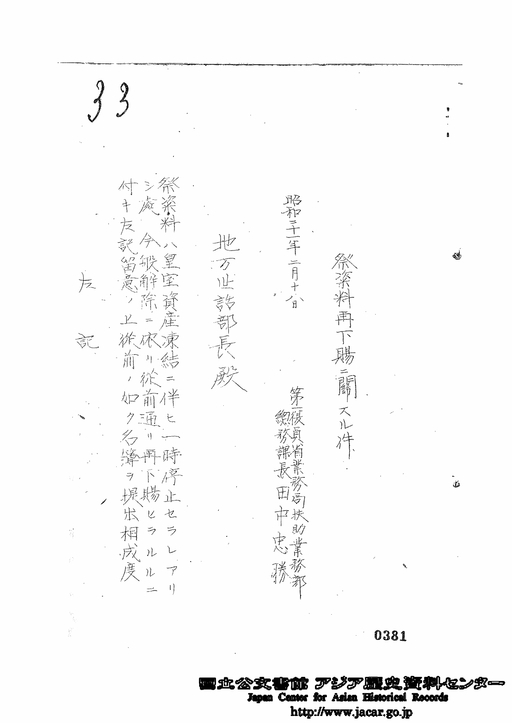 33
祭粢料再下賜ニ關スル件
昭和二十一年二月十八日
第一復員省業務局扶助業務部
總務課長田中忠勝
地方世話部長殿
祭粢料ハ皇室資産凍結ニ伴ヒ一時停止セラレアリ
シ處今般解除ニ依リ從前通リ再下賜セラルルニ
付キ左記留意ノ上從前ノ如ク名簿ヲ提出相成度
左記
0381
国立公文書館 アジア歴史資料センター
Japan Center for Asian Historical Records
http://www.jacar.go.jp